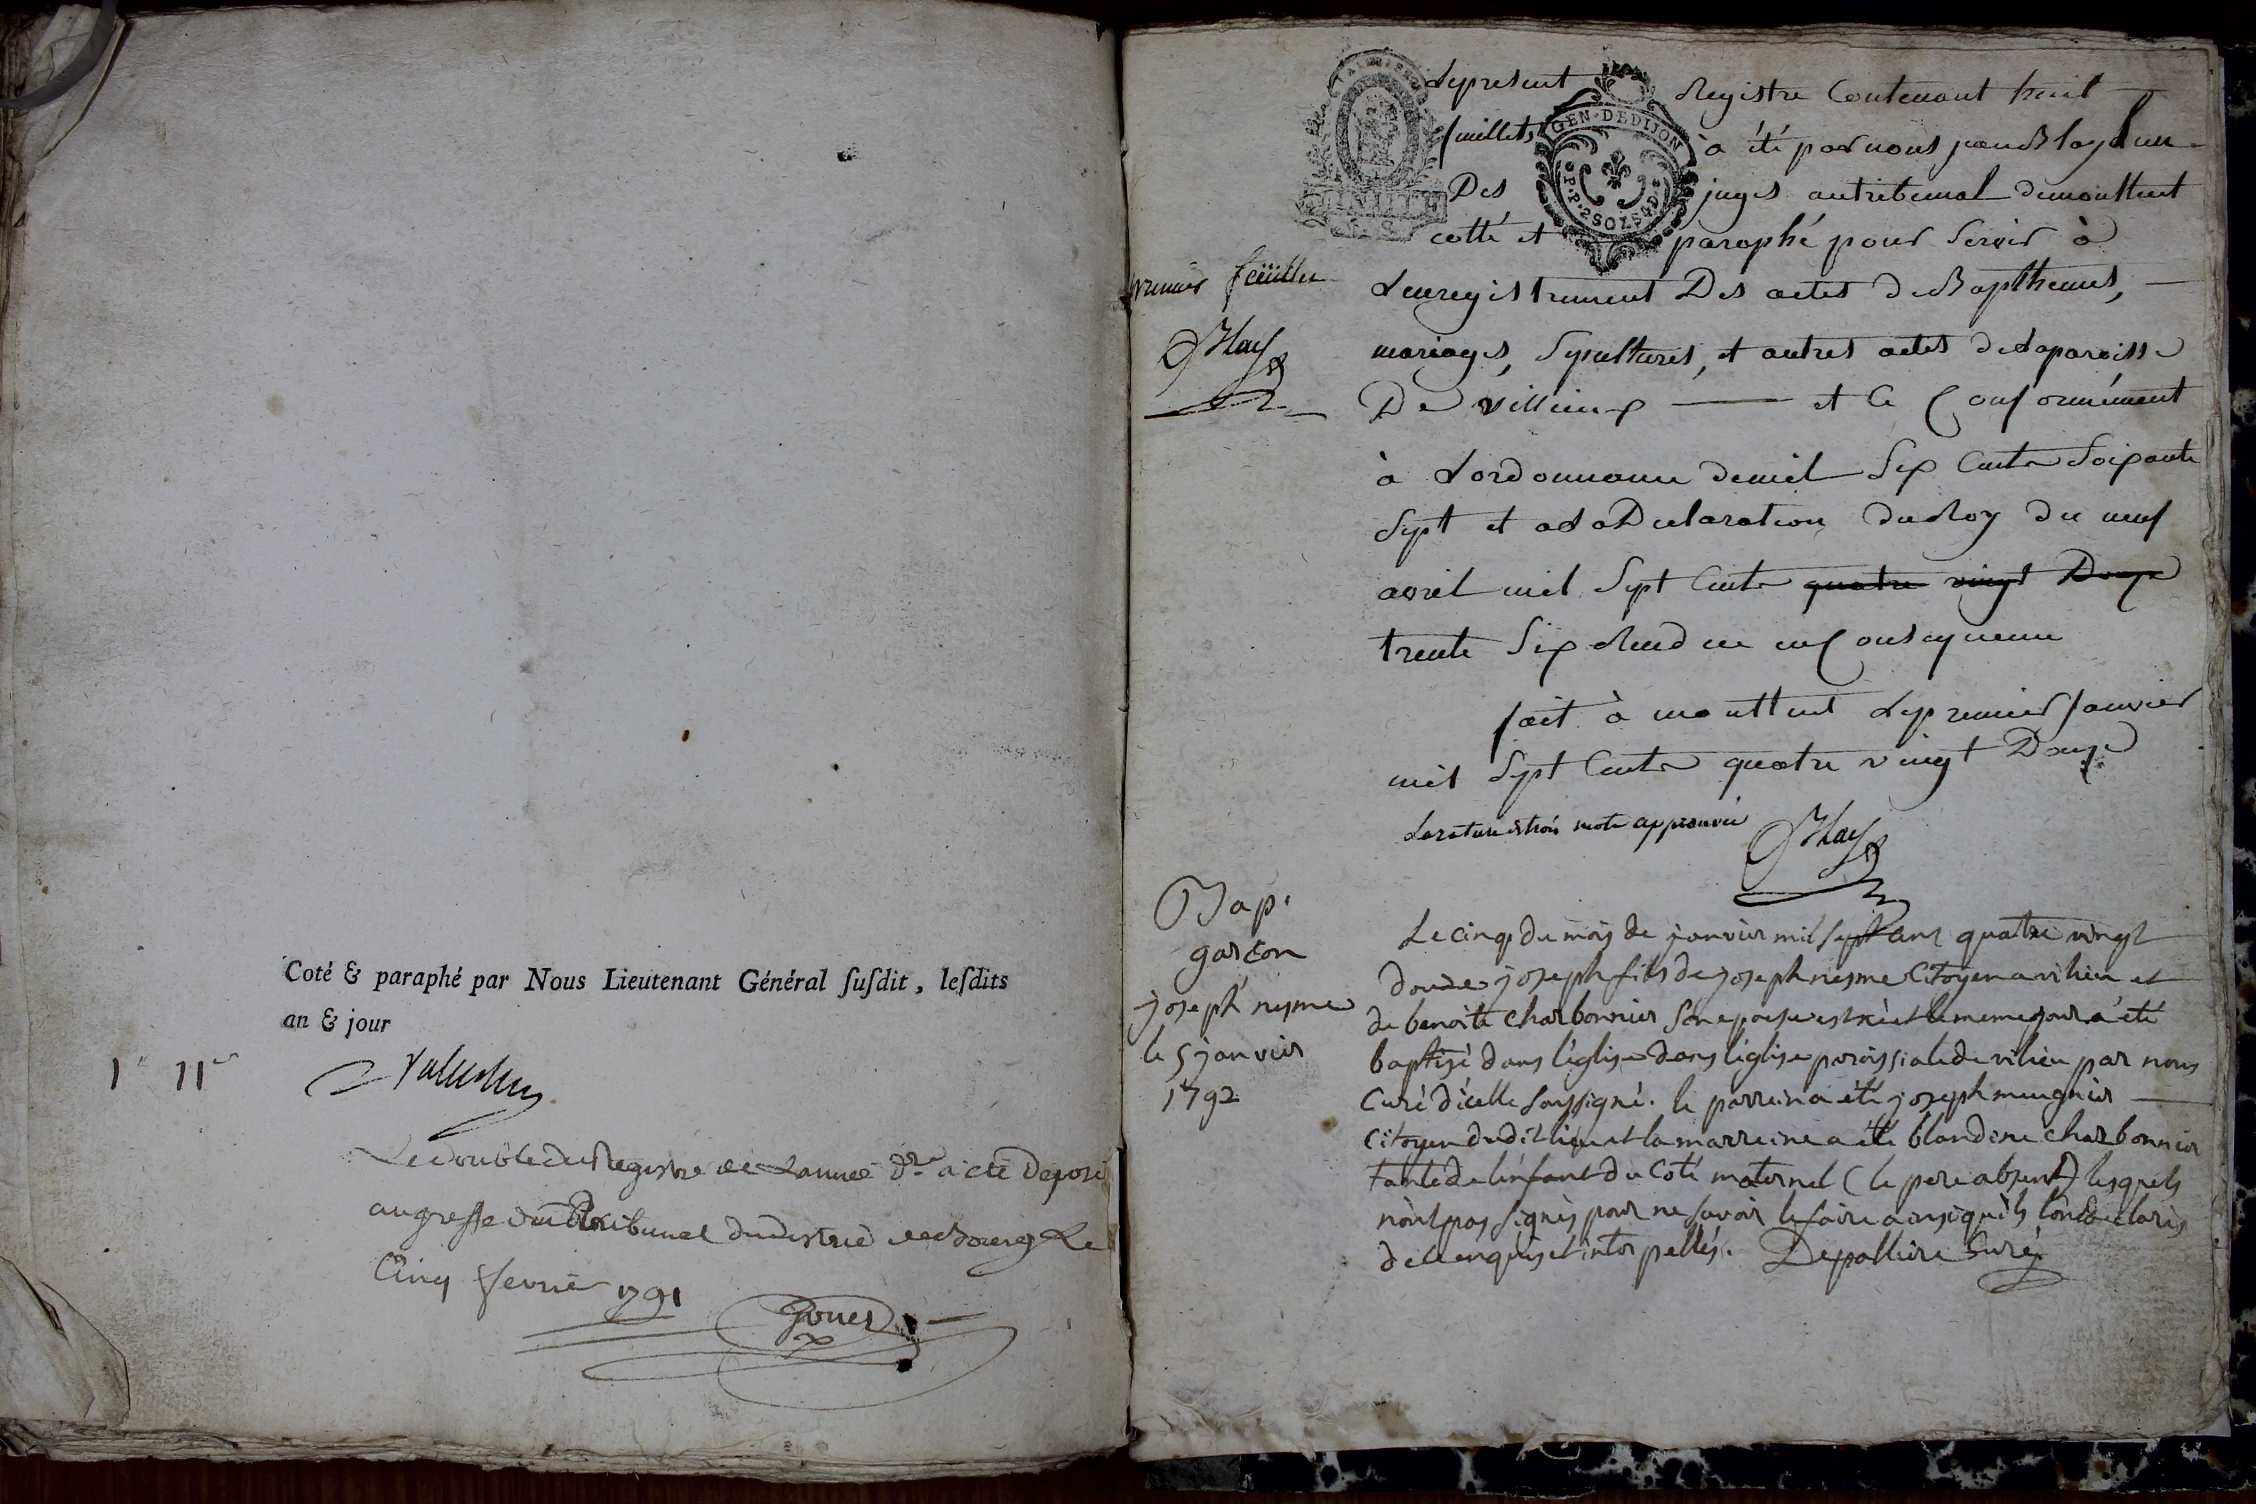 Coté & paraphé par Nous Lieutenant Général ſuſdit, leſdits
an & jour
Le double du Registre de L'année dre a été deposé
au greffe du Tribunal du district de Bourg Le
Cinq fevrier 1791
Le present Registre Contenant huit
feuillets à été par nous jean Blay l'un
Des juges au tribunal de montluel
cotté et paraphé pour servir à
GEN·DEDIJON
P·P·2SOLS4D
premier feüillet
Lenregistrement Des actes de Bapthemes,
mariages, sepultures, et autres actes de la paroisse
De villieux et Ce Conformément
à Lordonnance de mil six Cents soixante
sept et a la Declaration du Roy du neuf
avril mil sept Cents quatre vingt Douze
trente six Rendue en Consequence
fait à montluel le premier janvier
mil sept Cents quatre vingt Douze
La rature de trois mots approuvée
JBlay
Bap.
garcon
joseph nesme
le 5 janvier
1792
Le cinq du mois de janvier mil sept cent quatre vingt
douze joseph fils de joseph nesme Citoyen a vilieu et
de benoite charbonnier son epouse est né et le meme jour a été
baptisé dans l'église dans l'église paroissiale de vilieu par nous
Curé d'icelle soussigné. le parrein a été joseph meugnier
Citoyen dudit lieu et la marreine a été blandine charbonnier
tante de l'enfant du coté maternel (le pere absent) lesquels
n'ont pas signés pour ne savoir le faire ainsi qu'ils l'ont déclarés
de ce enquis et interpellés. Depalliere Curé